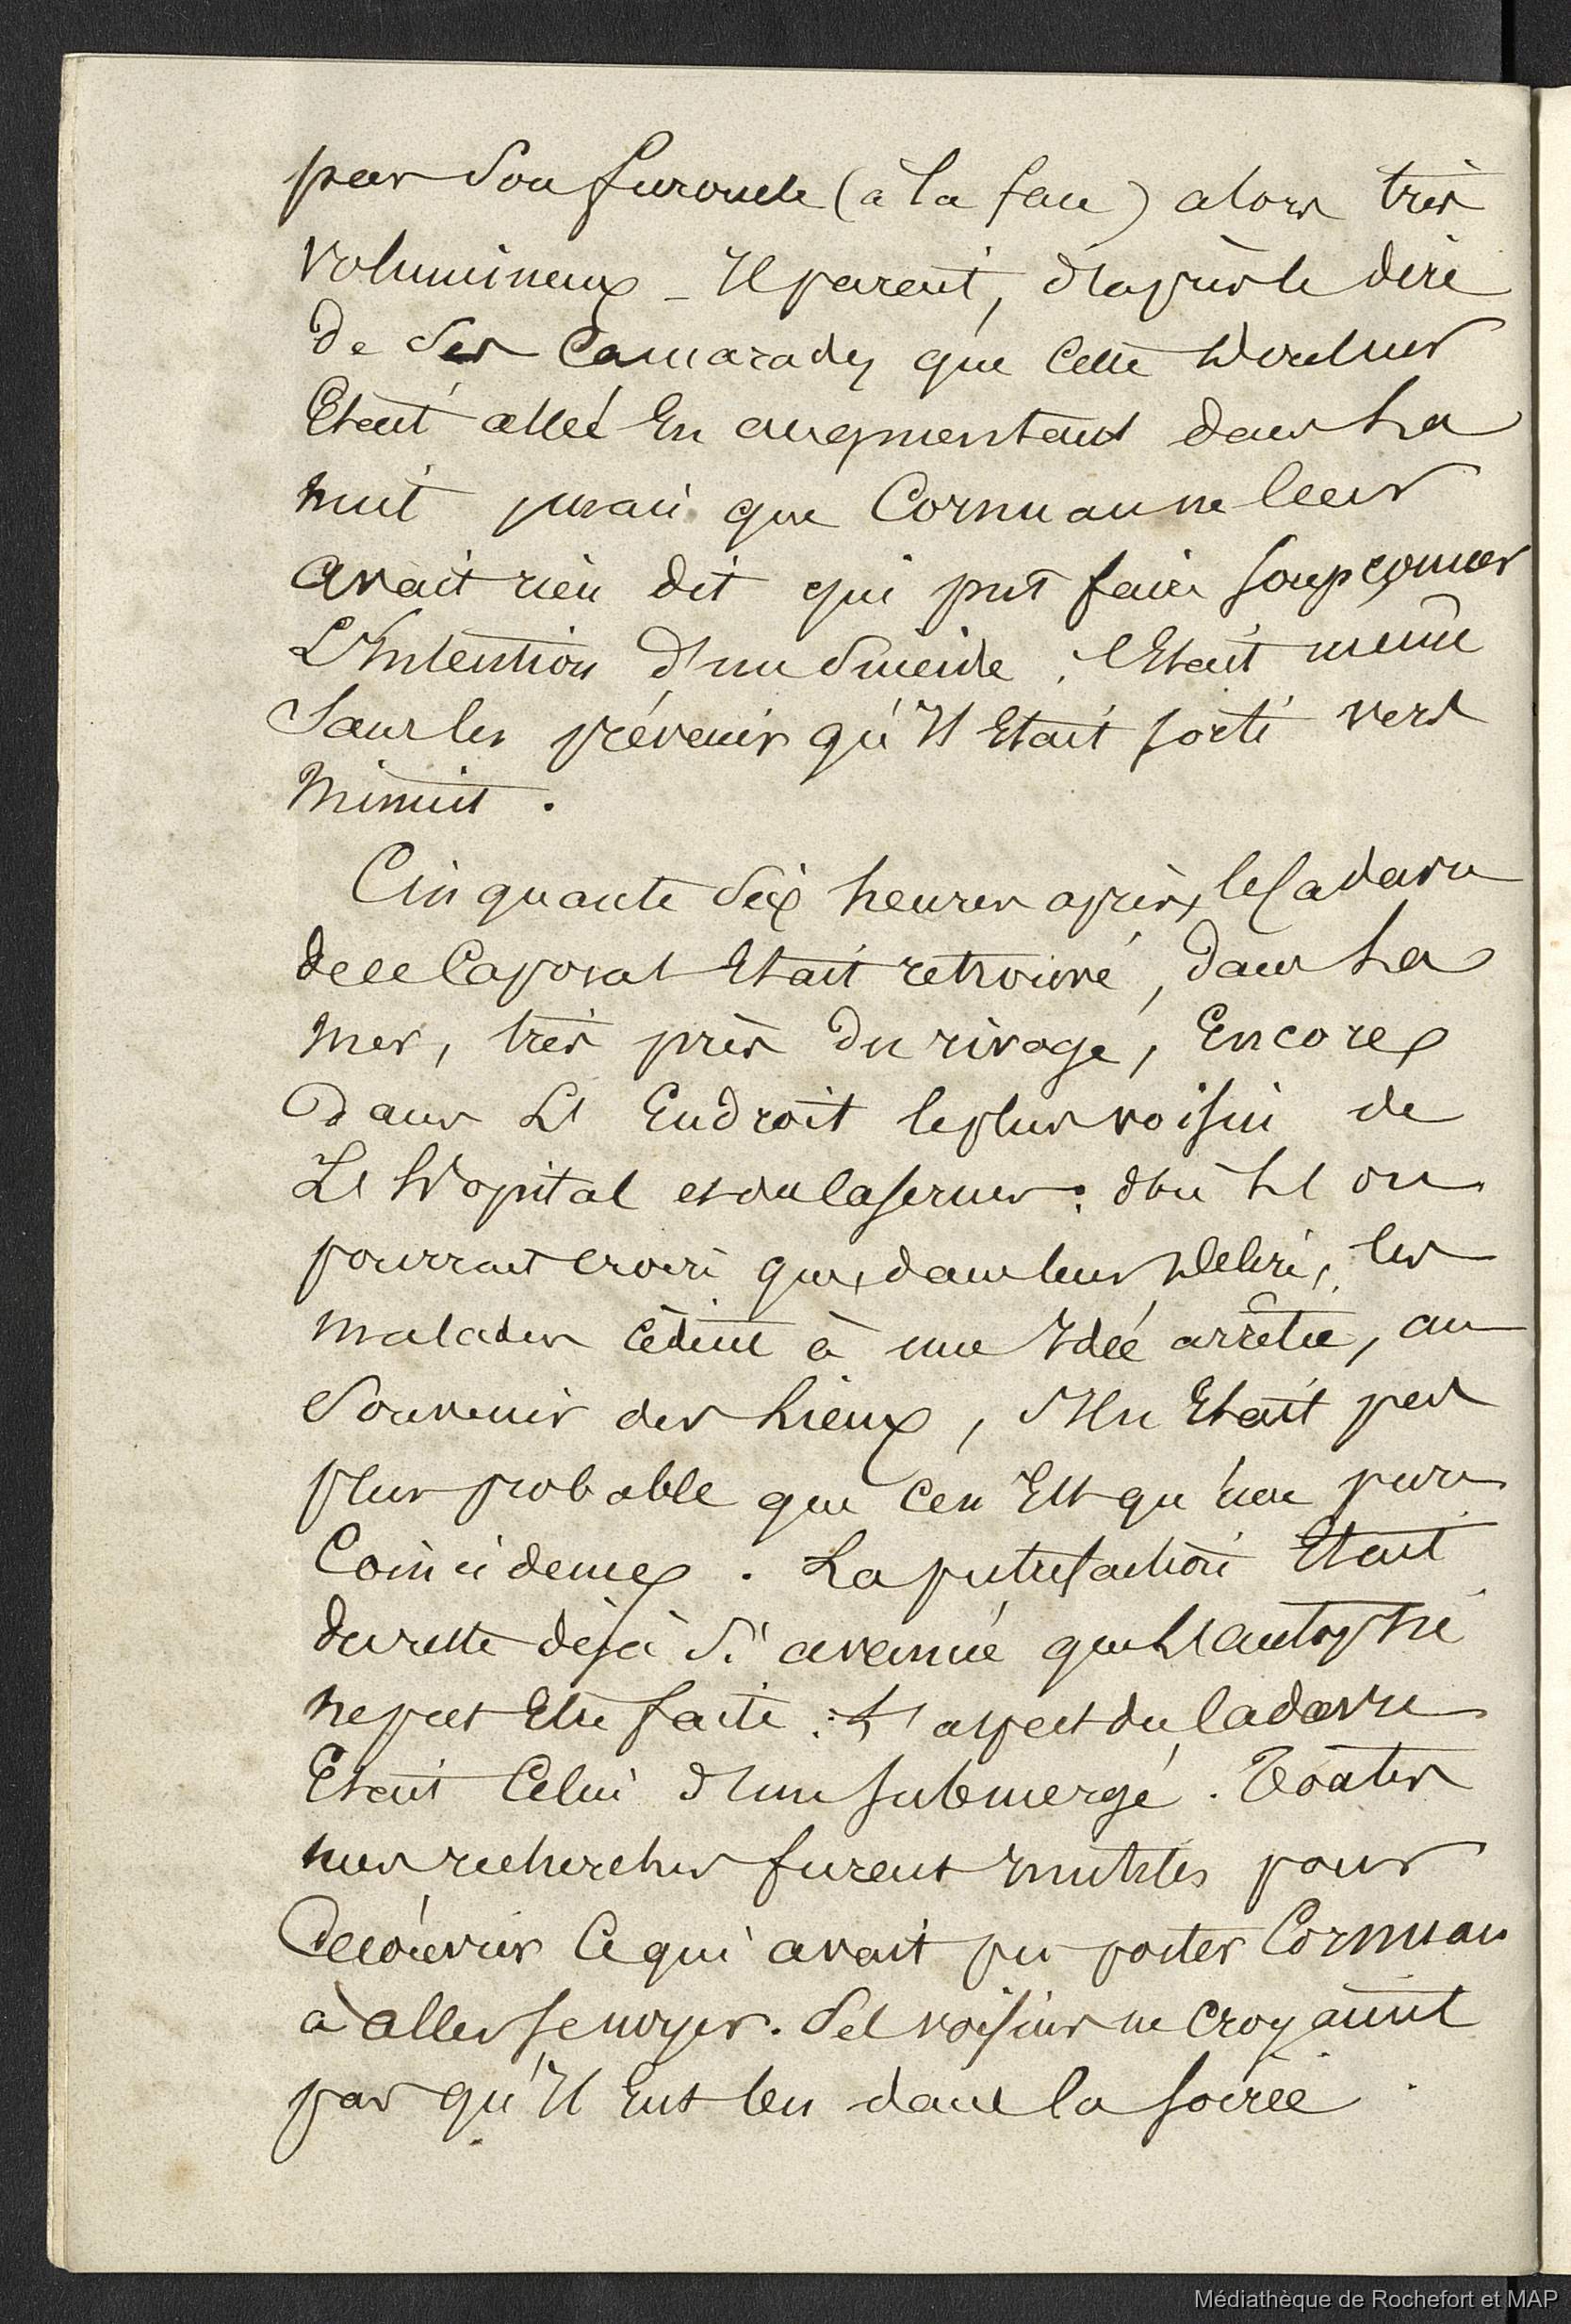 par son furoncle (à la face) alors très
volumineux _ Il parait, d'après le dire
de ses Camarades que cette douleur
Etait allée En augmentant dans La
nuit mais que Cornuau ne leur
avait rien dit qui put faire soupçonner
L'Intention d'un suicide ; C'Etait même
Sans les prévenir qu'Il Etait sorti vers
Minuit .
Cinquante six heures après, le Cadavre
de ce Caporal Etait retrouvé, dans La
mer, très près du rivage, Encore
Dans L'Endroit le plus voisin de
L'Hopital et du Casernes : d'où L'on
pourrait croire que, dans leur Délire, les
malades cèdent à une Idée arrêtée, au
Souvenir des Lieux, s'Il n'Etait pas
plus probable que ce n'Est qu'une pure
Coincidence . La putrefaction Etait
du reste déjà si avancée que L'autopsie
ne put Etre faite : L'aspect du Cadavre
Etait Celui d'un submergé . Toutes
mes recherches furent Inutiles pour
Découvrir Ce qui avait pu porter Cornuau
à aller se noyer . Ses voisins ne croyaient
pas qu'Il Eut bu dans la soirée .
Médiathèque de Rochefort et MAP